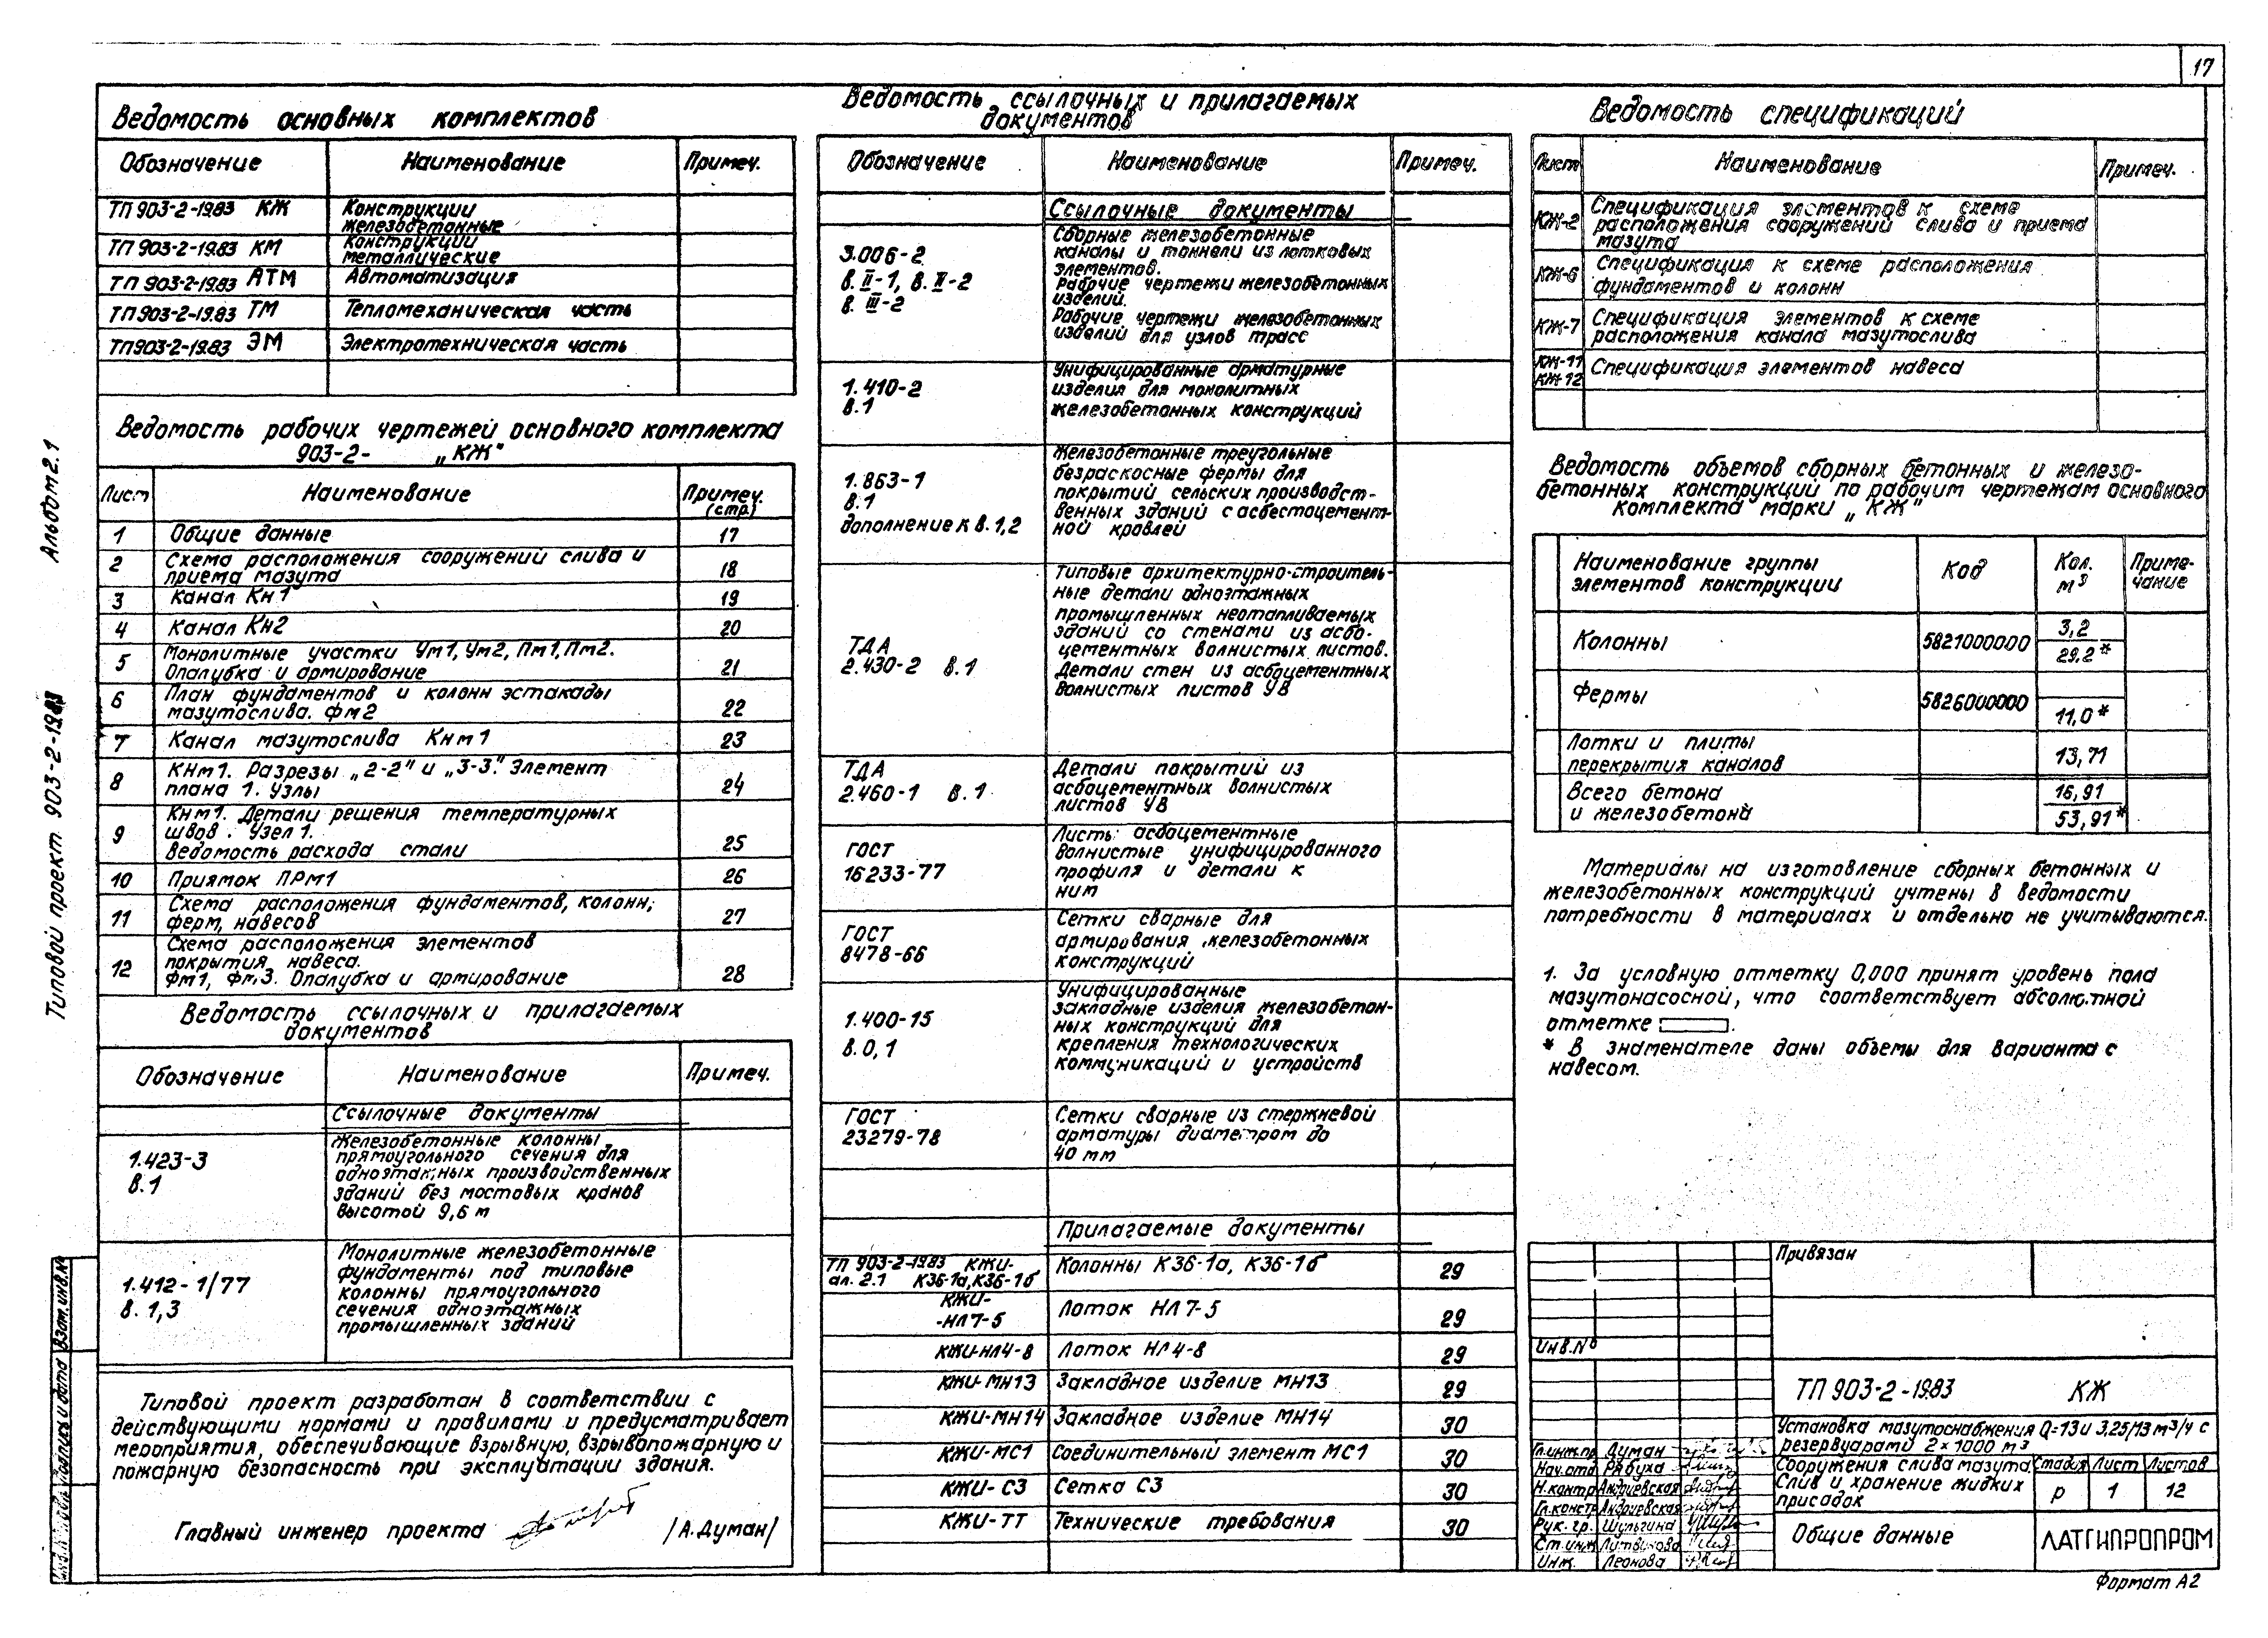 17
Альбом 2.1
Типовой проект 903-2-19.83
Ведомость основных комплектов
Обозначение Наименование Примеч.
ТП 903-2-19.83 КЖ Конструкции
железобетонные
ТП 903-2-19.83 КМ Конструкции
металлические
ТП 903-2-19.83 АТМ Автоматизация
ТП 903-2-19.83 ТМ Тепломеханическая часть
ТП 903-2-19.83 ЭМ Электротехническая часть
Ведомость рабочих чертежей основного комплекта
903-2- „КЖ"
Лист Наименование Примеч.
(стр.)
1 Общие данные 17
2 Схема расположения сооружений слива и
приема мазута 18
3 Канал Кн1 19
4 Канал Кн2 20
5 Монолитные участки Ум1, Ум2, Пм1, Пм2.
Опалубка и армирование 21
6 План фундаментов и колонн эстакады
мазутослива. Фм2 22
7 Канал мазутослива Кнм1 23
8 Кнм1. Разрезы „2-2" и „3-3". Элемент
плана 1. Узлы 24
9 Кнм1. Детали решения температурных
швов. Узел 1.
Ведомость расхода стали 25
10 Приямок ПРм1 26
11 Схема расположения фундаментов, колонн,
ферм, навесов 27
12 Схема расположения элементов
покрытия навеса.
Фм1, Фм3. Опалубка и армирование 28
Ведомость ссылочных и прилагаемых
документов
Обозначение Наименование Примеч.
Ссылочные документы
1.423-3
в.1
Железобетонные колонны
прямоугольного сечения для
одноэтажных производственных
зданий без мостовых кранов
высотой 9,6 м
1.412-1/77
в. 1,3
Монолитные железобетонные
фундаменты под типовые
колонны прямоугольного
сечения одноэтажных
промышленных зданий
Типовой проект разработан в соответствии с
действующими нормами и правилами и предусматривает
мероприятия, обеспечивающие взрывную, взрывопожарную и
пожарную безопасность при эксплуатации здания.
Главный инженер проекта /А.Думан/
Ведомость ссылочных и прилагаемых
документов
Обозначение Наименование Примеч.
Ссылочные документы
3.006-2
в. II-1, в. II-2
в. III-2
Сборные железобетонные
каналы и тоннели из лотковых
элементов.
Рабочие чертежи железобетонных
изделий.
Рабочие чертежи железобетонных
изделий для узлов трасс
1.410-2
в.1
Унифицированные арматурные
изделия для монолитных
железобетонных конструкций
1.863-1
в.1
дополнение к в.1,2
Железобетонные треугольные
безраскосные фермы для
покрытий сельских производст-
венных зданий с асбестоцемент-
ной кровлей
ТДА
2.430-2 в.1
Типовые архитектурно-строитель-
ные детали одноэтажных
промышленных неотапливаемых
зданий со стенами из асбо-
цементных волнистых листов.
Детали стен из асбоцементных
волнистых листов УВ
ТДА
2.460-1 в.1
Детали покрытий из
асбоцементных волнистых
листов УВ
ГОСТ
16233-77
Листы асбоцементные
волнистые унифицированного
профиля и детали к
ним
ГОСТ
8478-66
Сетки сварные для
армирования железобетонных
конструкций
1.400-15
в.0,1
Унифицированные
закладные изделия железобетон-
ных конструкций для
крепления технологических
коммуникаций и устройств
ГОСТ
23279-78
Сетки сварные из стержневой
арматуры диаметром до
40 мм
Прилагаемые документы
ТП 903-2-19.83 КЖИ-
ал. 2.1 К36-1а, К36-1б Колонны К36-1а, К36-1б 29
КЖИ-
-НЛ7-5 Лоток НЛ7-5 29
КЖИ-НЛ4-8 Лоток НЛ4-8 29
КЖИ-МН13 Закладное изделие МН13 29
КЖИ-МН14 Закладное изделие МН14 30
КЖИ-МС1 Соединительный элемент МС1 30
КЖИ-С3 Сетка С3 30
КЖИ-ТТ Технические требования 30
Ведомость спецификаций
Лист Наименование Примеч.
КЖ-2 Спецификация элементов к схеме
расположения сооружений слива и приема
мазута
КЖ-6 Спецификация к схеме расположения
фундаментов и колонн
КЖ-7 Спецификация элементов к схеме
расположения канала мазутослива
КЖ-11
КЖ-12 Спецификация элементов навеса
Ведомость объемов сборных бетонных и железо-
бетонных конструкций по рабочим чертежам основного
комплекта марки „КЖ"
Наименование группы
элементов конструкции Код Кол.
м³ Приме-
чание
Колонны 5821000000 3,2
29,2*
Фермы 5826000000
11,0*
Лотки и плиты
перекрытия каналов 13,71
Всего бетона
и железобетона 16,91
53,91*
Материалы на изготовление сборных бетонных и
железобетонных конструкций учтены в ведомости
потребности в материалах и отдельно не учитываются.
1. За условную отметку 0,000 принят уровень пола
мазутонасосной, что соответствует абсолютной
отметке .
* В знаменателе даны объемы для варианта с
навесом.
Привязан
Инв.№
ТП 903-2-19.83 КЖ
Установка мазутоснабжения Q=13 и 3,25/13 м³/ч с
резервуарами 2×1000 м³
Сооружения слива мазута.
Слив и хранение жидких
присадок
Стадия Лист Листов
р 1 12
Общие данные
ЛАТГИПРОПРОМ
Гл.инж.пр. Думан
Нач.отд. Рябуха
Н.контр. Андриевская
Гл.констр. Андриевская
Рук. гр. Шульгина
Ст.инж. Литвинова
Инж. Леонова
Формат А2
Взам.инв.№
Подпись и дата